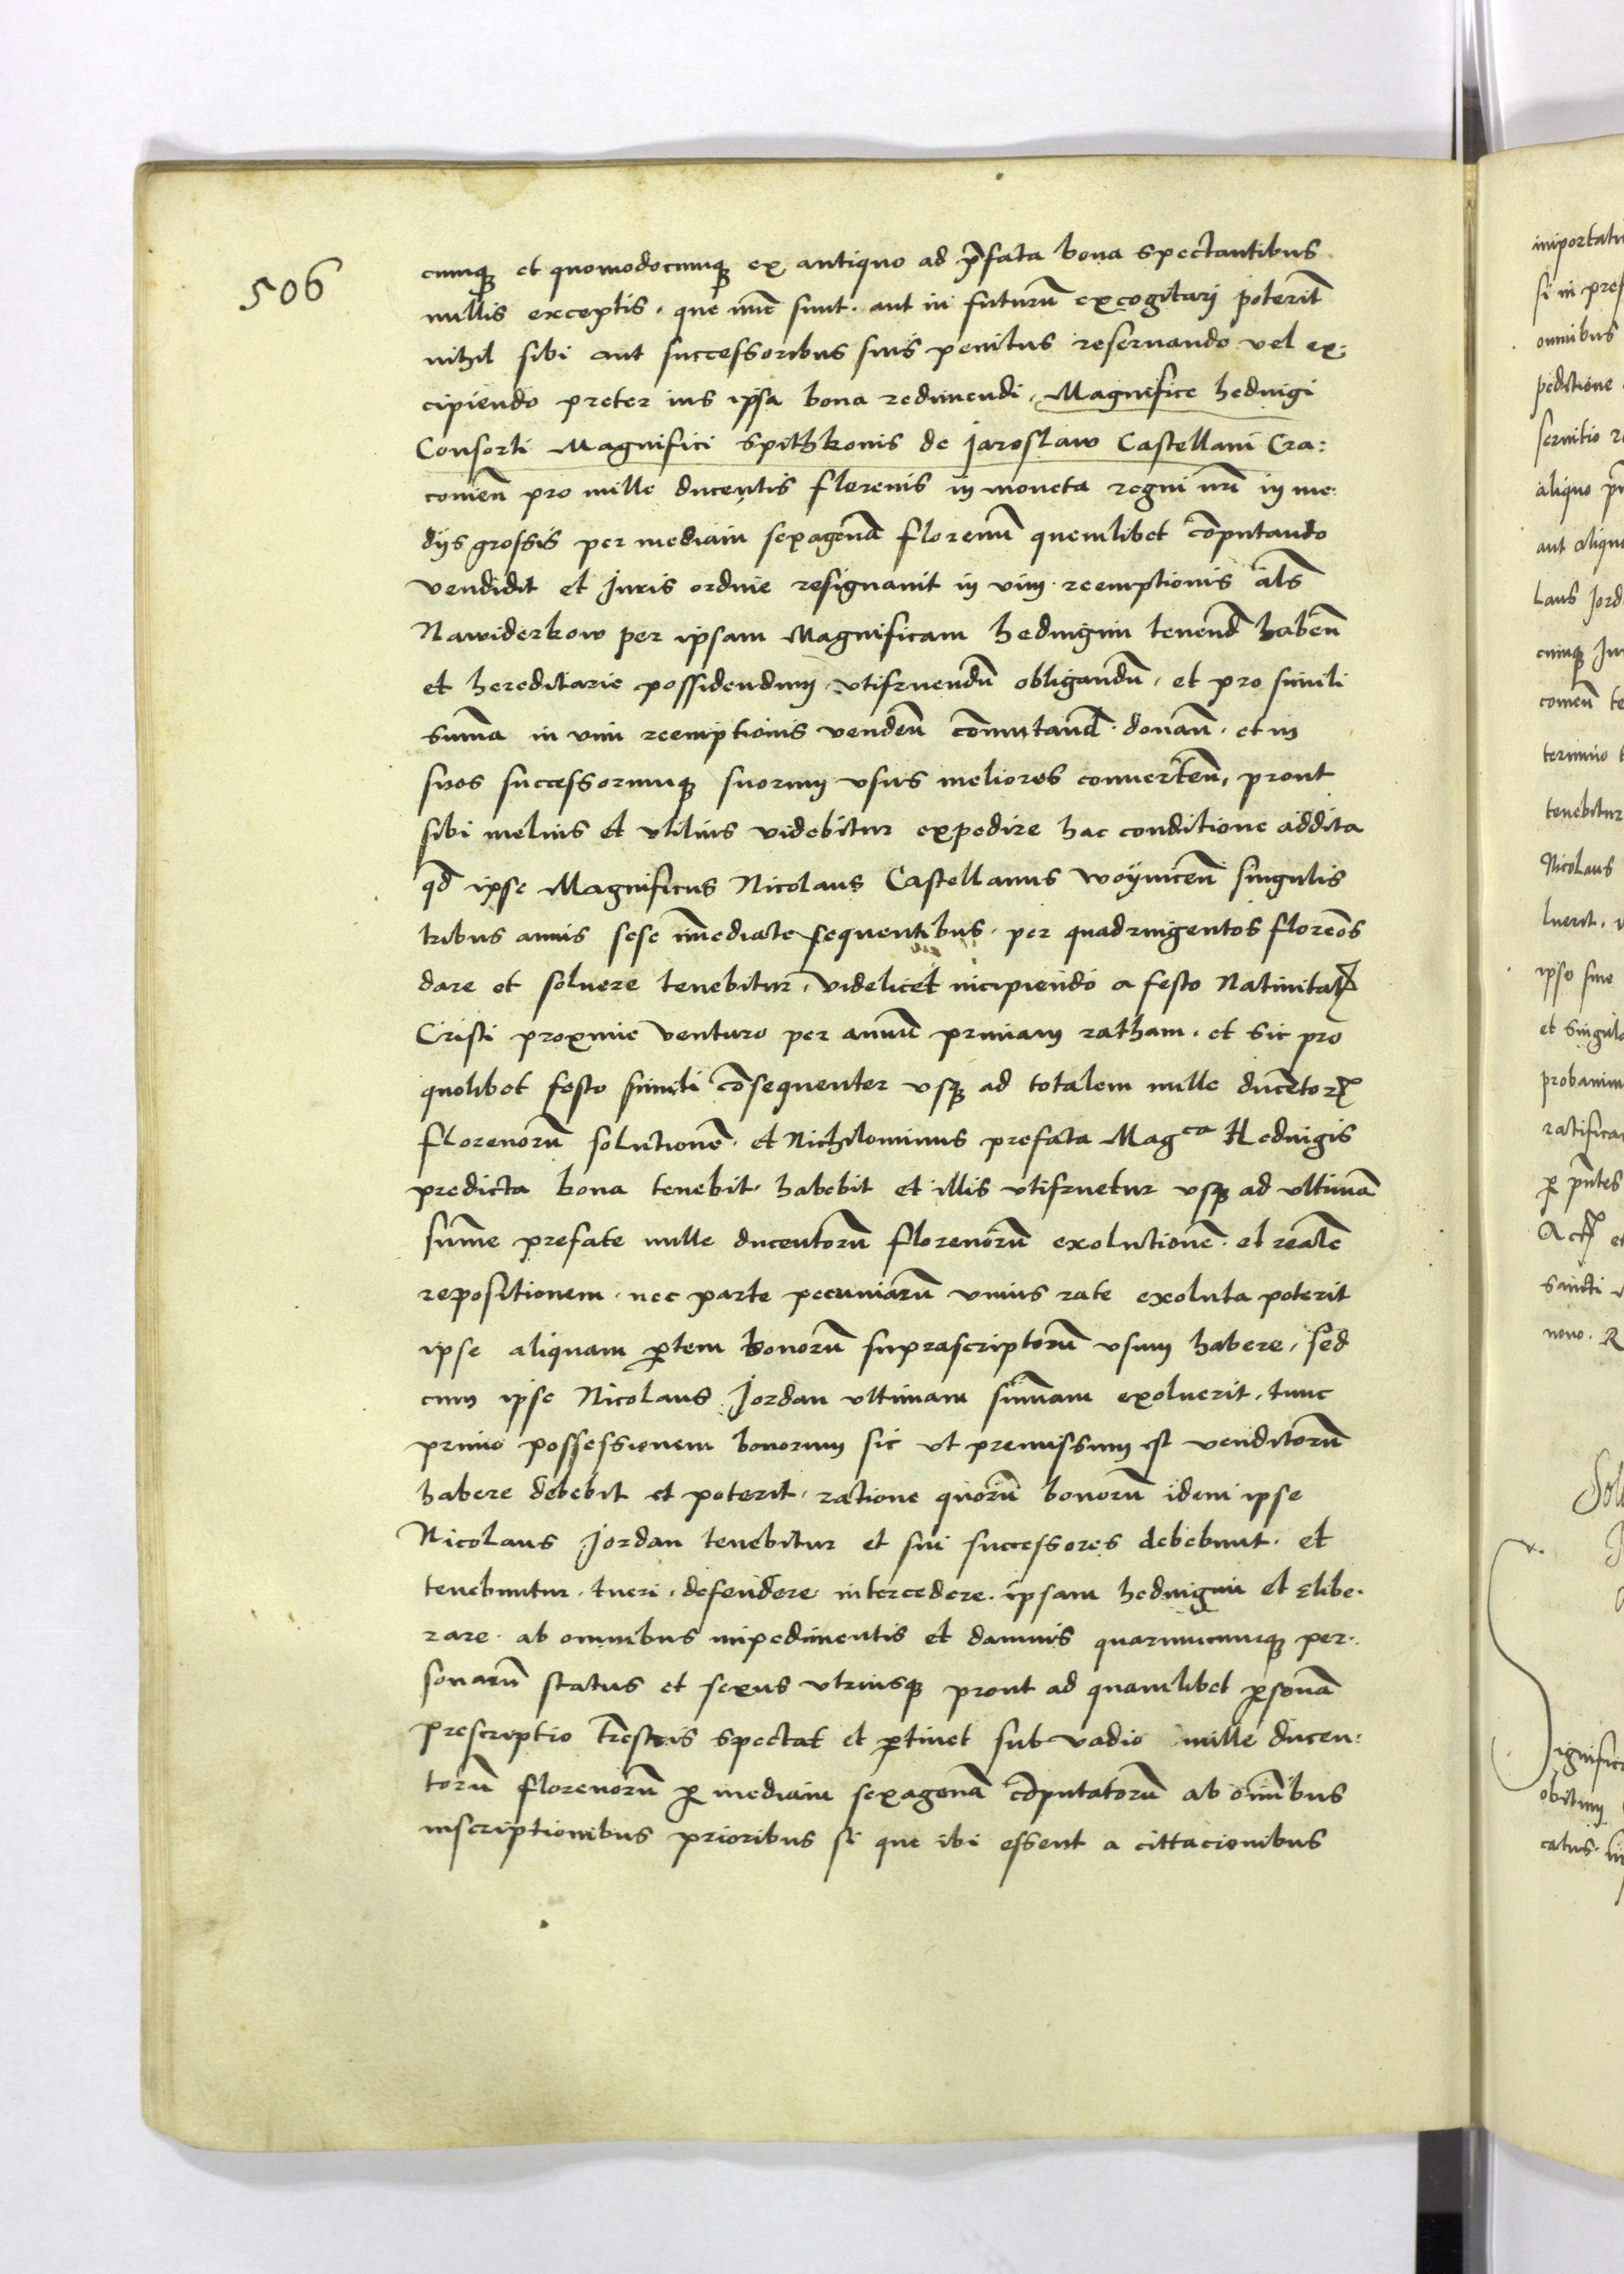 506
cumq̃ et quomodocumq̃ ex antiquo ad p̃fata bona spectantibus
nullis exceptis. que nũc sunt. aut in futurũ excogitarj poterĩt
nihil sibi aut successoribus suis penitus reseruando vel ex:
cipiendo preter ius ipsa bona redimendi. Magnifice heduigi
Consorti Magnifici Spithkonis de Jaroslaw Castellani Cra:
couieñ pro mille ducentis florenis in moneta regni nrĩ in me:
dijs grossis per mediam sexagenã florenũ quemlibet cõputando
vendidit et Juris ordine resignauit in vim reemptionis als̃
Nawiderkow per ipsam Magnificam heduigim tenend̃ habeñ
et hereditarie possidendum vtifruendũ obligandũ. et pro simili
sum̃a in vim reemptionis vendeñ com̃utand̃. donañ. et in
suos successorumq̃ suorum vsus meliores conuerteñ, prout
sibi melius et vtilius videbitur expedire hac conditione addita
qd̃ ipse Magnificus Nicolaus Castellanus woyniceñ singulis
tribus annis sese im̃ediate sequentibus. per quadringentos floreños
dare et soluere tenebitur. videlicet incipiendo a festo Natiuitat̃
Cristi proxime venturo per annũ primam ratham. et sic pro
quolibet festo simili cõsequenter vsq̃ ad totalem mille ducẽtor̃
florenorũ solutionẽ. et Nichilominus prefata Mag^ca Heduigis
predicta bona tenebit. habebit et illis vtifruetur vsq̃ ad vltimã
sum̃e prefate mille ducentorũ florenorũ exolutionẽ. et realẽ
repositionem. nec parte pecuniarũ vnius rate exoluta poterit
ipse aliquam p̃tem bonorũ suprascriptorũ vsum habere, sed
cum ipse Nicolaus Jordan vltimam sum̃am exoluerit. tunc
primo possessionem bonorum sic vt premissum est venditorũ
habere debebit et poterit. ratione quorũ bonorũ idem ipse
Nicolaus Jordan tenebitur et sui successores debebunt. et
tenebuntur. tueri. defendere intercedere. ipsam heduigim et elibe.
rare. ab omnibus impedimentis et damnis quarumcumq̃ per.
sonarũ status et sexus vtriusq̃ prout ad quamlibet p̃sonã
prescriptio tr̃estris spectat et p̃tinet sub vadio mille ducen:
torũ florenorũ p̃ mediam sexagenã cõputatorũ ab om̃ibus
inscriptionibus prioribus si que ibi essent a cittacionibus